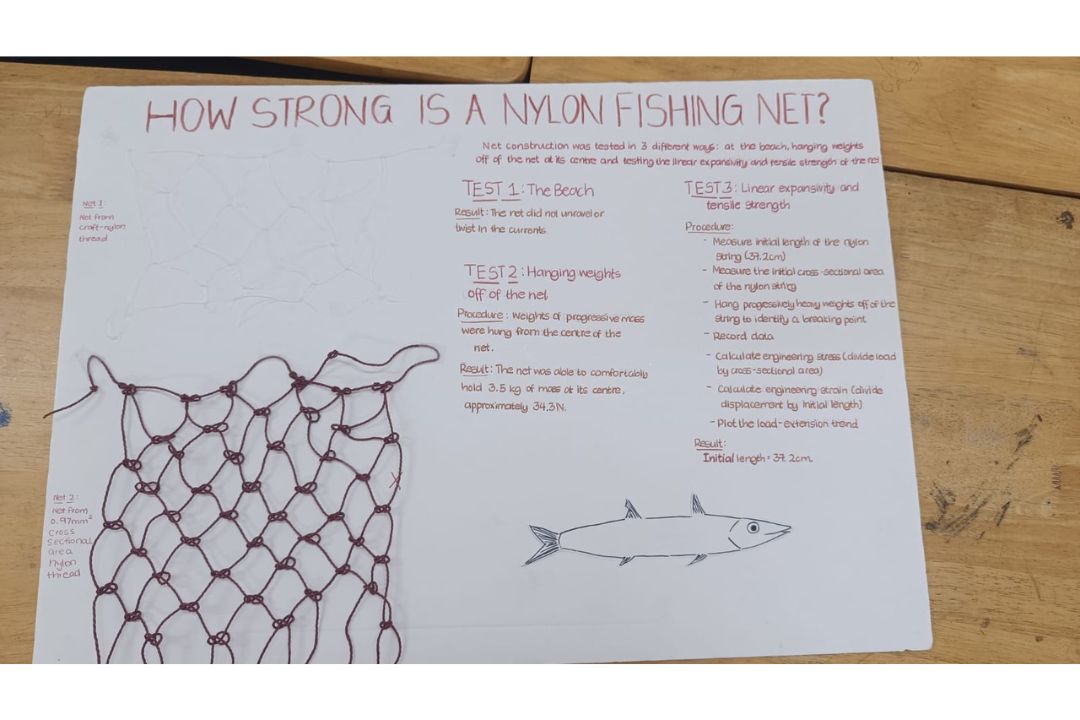 HOW STRONG IS A NYLON FISHING NET?
Net construction was tested in 3 different ways: at the beach, hanging weights
off of the net at its centre and testing the linear expansivity and tensile strength of the net
Net 1:
Net from
craft-nylon
thread
TEST 1: The Beach
Result: The net did not unravel or
twist in the currents.
TEST 2: Hanging weights
off of the net
Procedure: Weights of progressive mass
were hung from the centre of the
net.
Result: The net was able to comfortably
hold 3.5 kg of mass at its centre,
approximately 34.3N.
TEST 3: Linear expansivity and
tensile strength
Procedure:
- Measure initial length of the nylon
string (37.2cm)
- Measure the initial cross-sectional area
of the nylon string
- Hang progressively heavy weights off of the
string to identify a breaking point
- Record data
- Calculate engineering stress (divide load
by cross-sectional area)
- Calculate engineering strain (divide
displacement by initial length)
- Plot the load-extension trend
Result:
Initial length = 37.2cm
Net 2:
Net from
0.97mm²
cross
sectional
area
nylon
thread
X